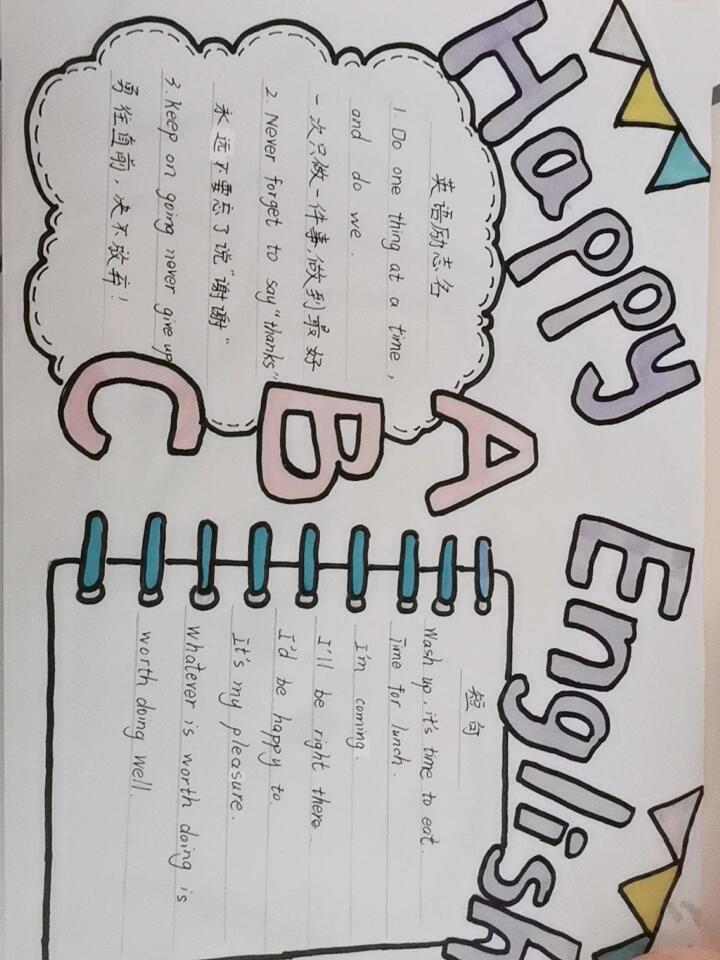 Happy English
英语励志名
1. Do one thing at a time,
and do we.
一次只做一件事,做到最好
2. Never forget to say "thanks"
永远不要忘了说"谢谢"
3. Keep on going never give up
勇往直前,决不放弃!
A B C
短句
Wash up, it's time to eat.
Time for lunch.
I'm coming.
I'll be right there
I'd be happy to
It's my pleasure.
Whatever is worth doing is
worth doing well.